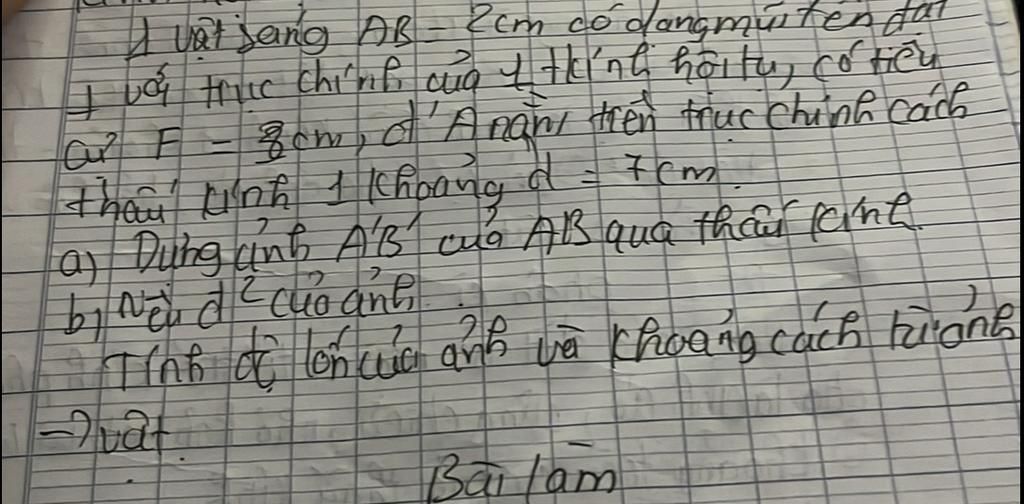 1 vật sáng AB = 2cm có dạng mũi tên đặt
⊥ với trục chính của 1 tkính hội tụ, có tiêu
cự F = 3cm, đ' A nằm trên trục chính cách
thấu kính 1 khoảng d = 7cm.
a) Dựng ảnh A'B' của AB qua thấu kính.
b) Nêu đ² của ảnh.
Tính độ lớn của ảnh và khoảng cách từ ảnh
→ vật.
Bài làm